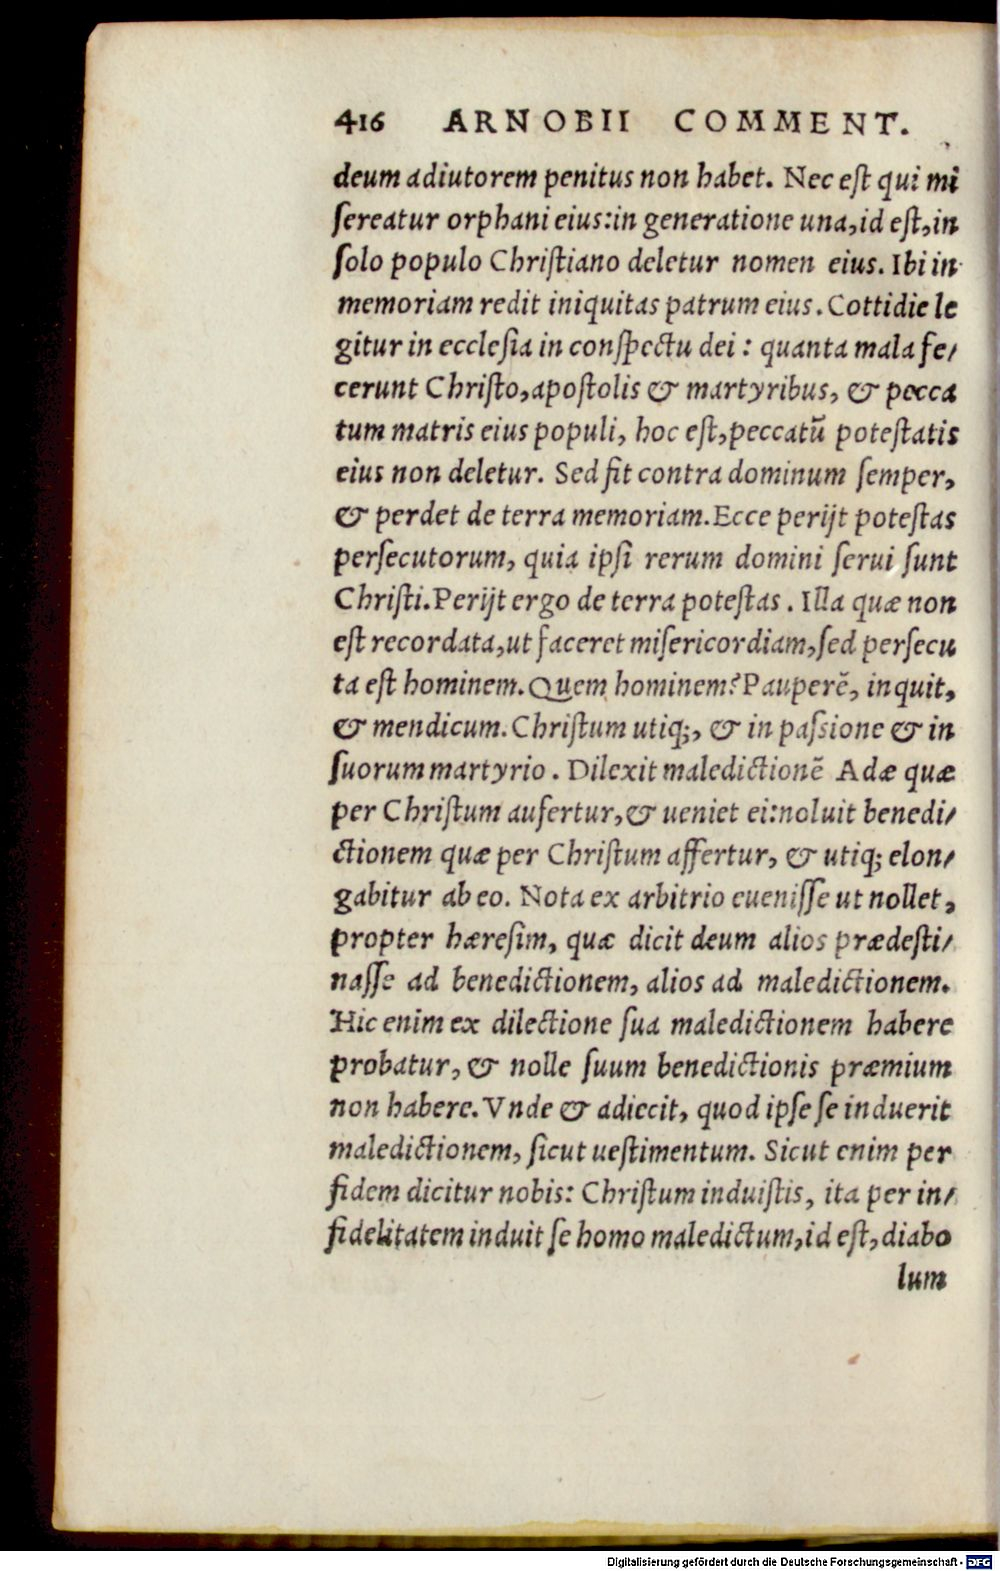 416 ARNOBII COMMENT.
deum adiutorem penitus non habet. Nec eſt qui mi
ſereatur orphani eius:in generatione una,id eſt,in
ſolo populo Chriſtiano deletur nomen eius. Ibi in
memoriam redit iniquitas patrum eius. Cottidie le
gitur in eccleſia in conſpectu dei : quanta mala fe/
cerunt Chriſto,apoſtolis & martyribus, & pecca
tum matris eius populi, hoc eſt,peccatũ poteſtatis
eius non deletur. Sed fit contra dominum ſemper,
& perdet de terra memoriam.Ecce perijt poteſtas
perſecutorum, quia ipſi rerum domini ſerui ſunt
Chriſti.Perijt ergo de terra poteſtas . Illa quæ non
eſt recordata,ut faceret miſericordiam,ſed perſecu
ta eſt hominem.Quem hominem?Pauperẽ, inquit,
& mendicum.Chriſtum utiq;, & in paſsione & in
ſuorum martyrio . Dilexit maledictionẽ Adæ quæ
per Chriſtum aufertur,& ueniet ei:noluit benedi/
ctionem quæ per Chriſtum affertur, & utiq; elon/
gabitur ab eo. Nota ex arbitrio eueniſſe ut nollet,
propter hæreſim, quæ dicit deum alios prædeſti/
naſſe ad benedictionem, alios ad maledictionem.
Hic enim ex dilectione ſua maledictionem habere
probatur, & nolle ſuum benedictionis præmium
non habere. Vnde & adiecit, quod ipſe ſe induerit
maledictionem, ſicut ueſtimentum. Sicut enim per
fidem dicitur nobis: Chriſtum induiſtis, ita per in/
fidelitatem induit ſe homo maledictum,id eſt,diabo
lum
Digitalisierung gefördert durch die Deutsche Forschungsgemeinschaft - DFG